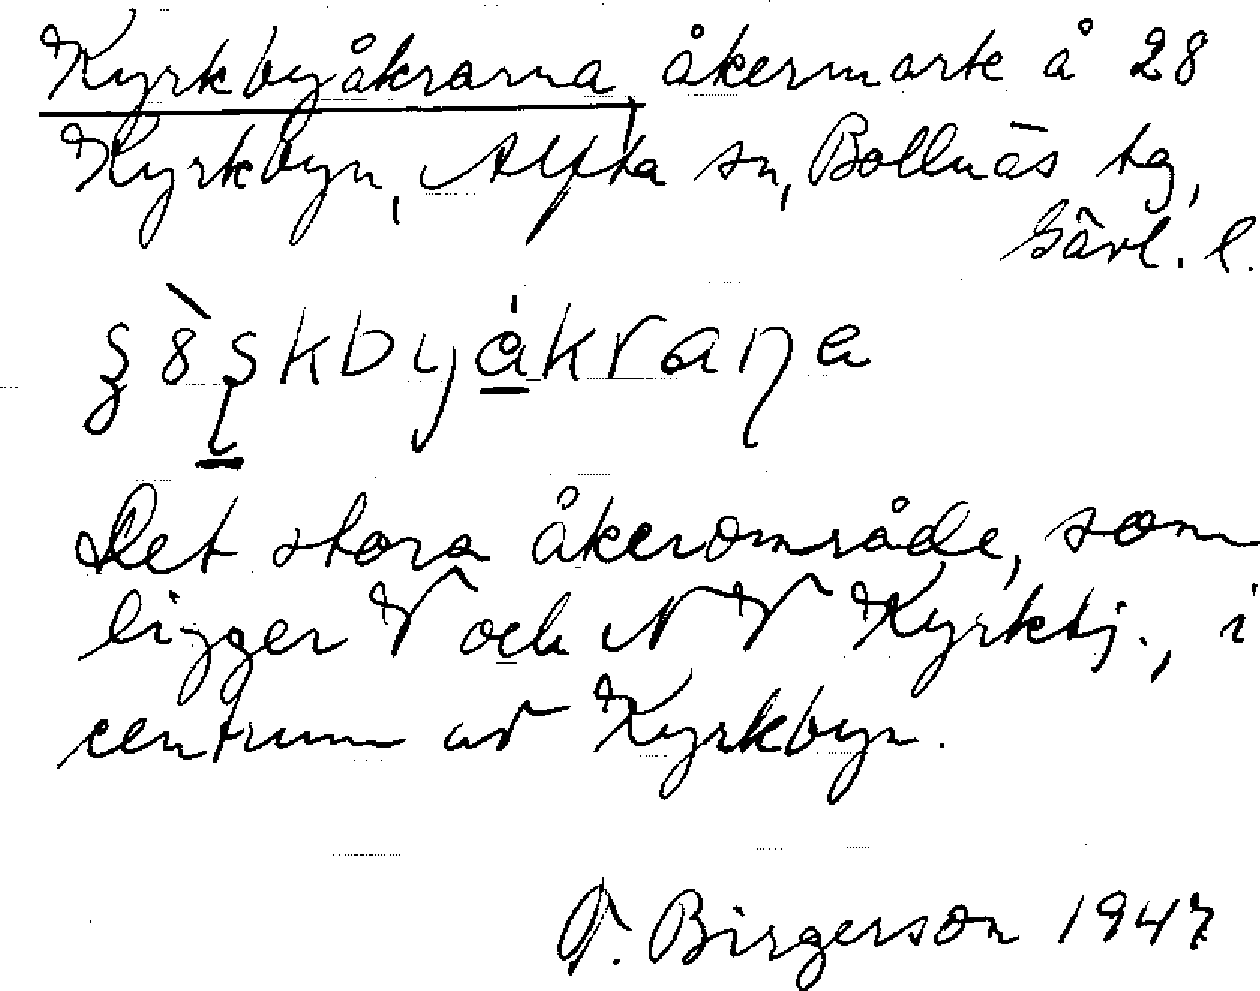 Kyrkbyåkrarna, åkermark å 28
Kyrkbyn, Alfta sn, Bollnäs tg,
Gävl. l.
Det stora åkerområde, som
ligger V och NV Kyrktj., i
centrum av Kyrkbyn.
Birgerson 1947